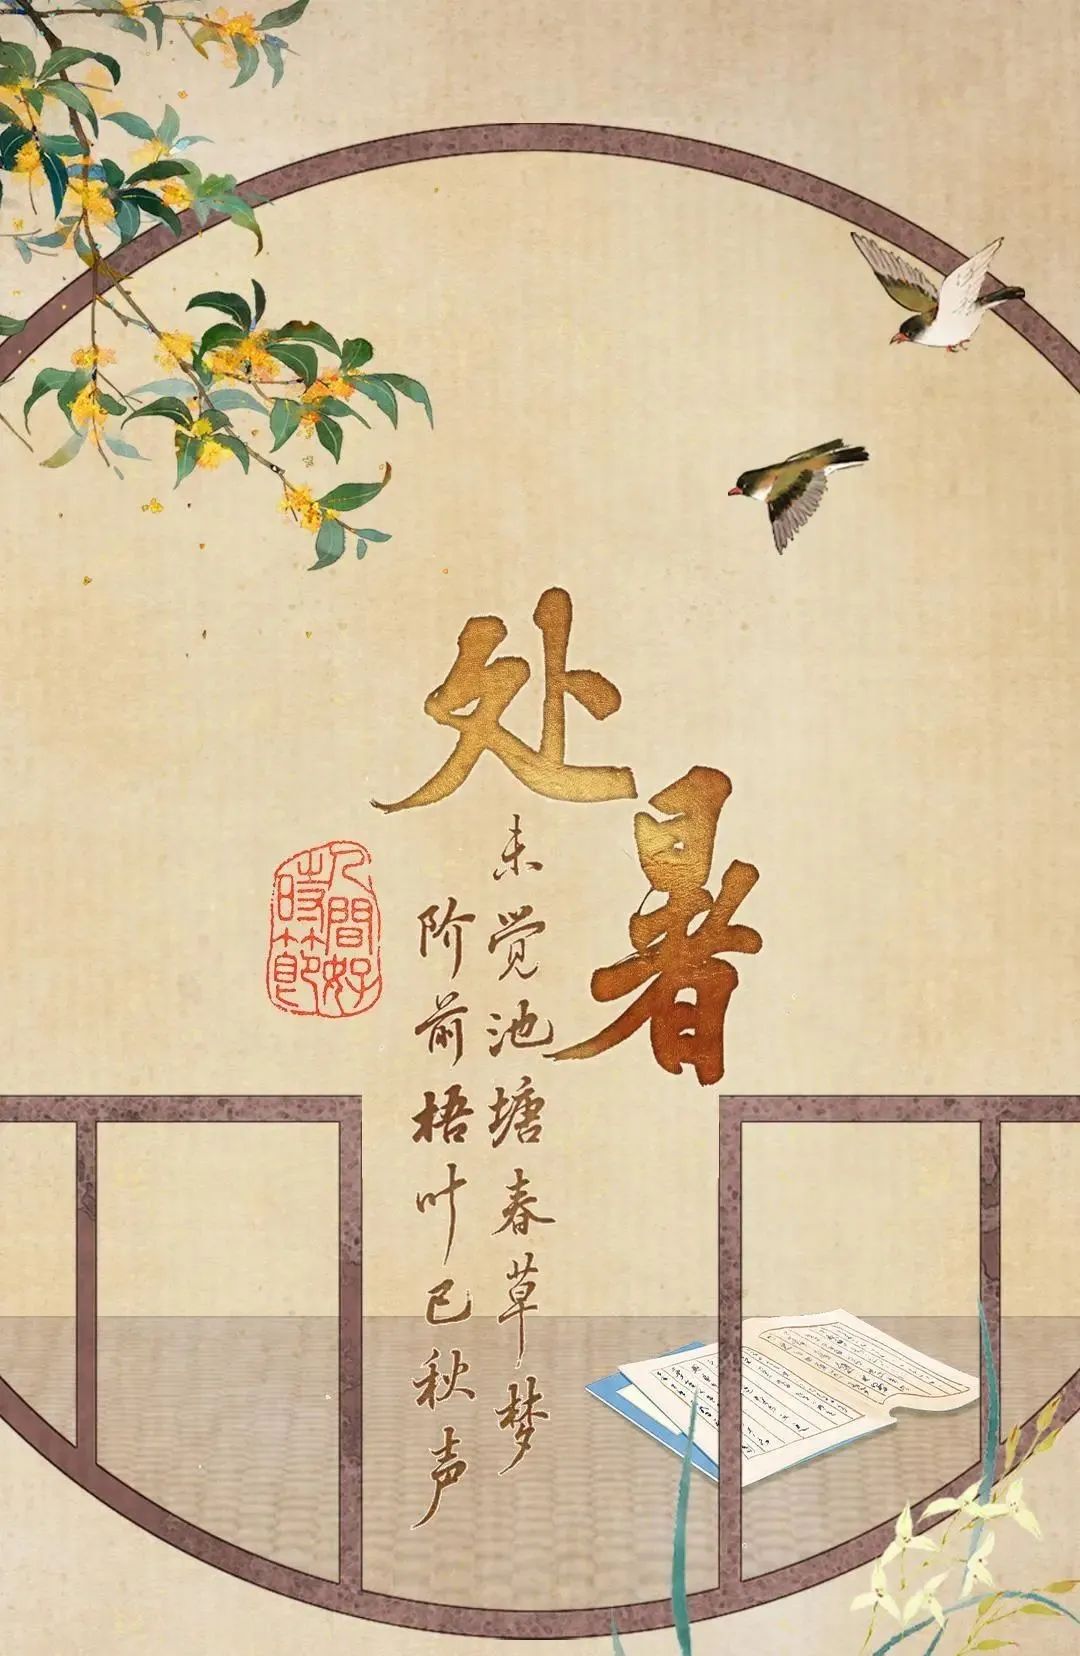 处暑
未觉池塘春草梦
阶前梧叶已秋声
人間好
時節